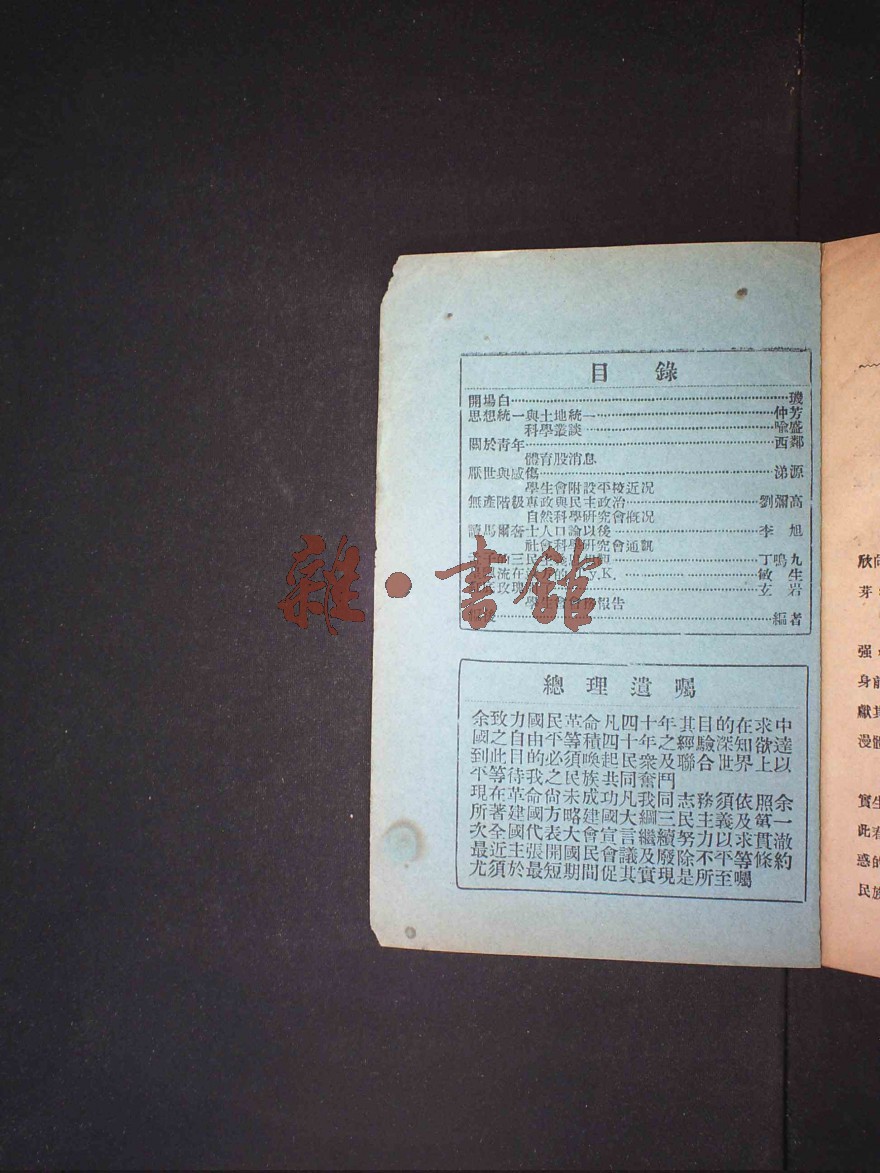 目錄
開場白……璣
思想統一與土地統一……仲芳
科學叢談……喩盛
關於靑年……西鄰
體育股消息
厭世與感傷……涕源
學生會附設平校近況
無產階級專政與民主政治……劉彌高
自然科學研究會概况
讀馬爾薩士人口論以後……李旭
社會科學研究會通訊
三民……丁鳴九
流在……的……y.K.……敏生
玫瑰……玄岩
學生會會務報告
……編者
總理遺囑
余致力國民革命凡四十年其目的在求中
國之自由平等積四十年之經驗深知欲達
到此目的必須喚起民衆及聯合世界上以
平等待我之民族共同奮鬥
現在革命尙未成功凡我同志務須依照余
所著建國方略建國大綱三民主義及第一
次全國代表大會宣言繼續努力以求貫澈
最近主張開國民會議及廢除不平等條約
尤須於最短期間促其實現是所至囑
雜·書館
欣
芽
强
身前
獻其
漫
實生
此春
惑的
民族